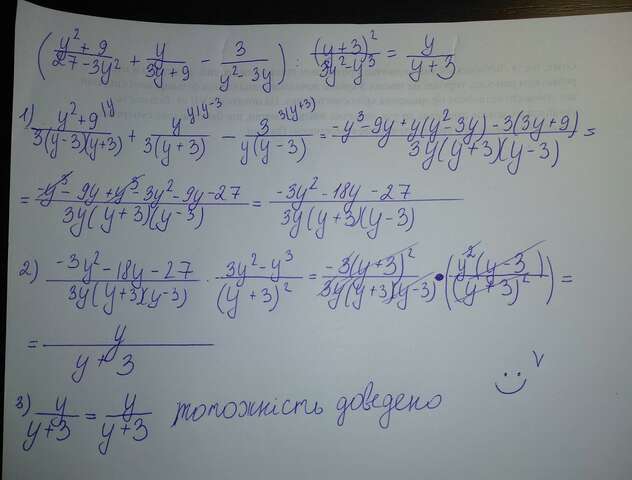 (y²+9/27-3y² + y/3y+9 - 3/y²-3y) : (y+3)²/3y²-y³ = y/y+3
1) y²+9|y/3(y-3)(y+3) + y|y|y-3/3(y+3) - 3 3(y+3)/y(y-3) = -y³-9y+y(y²-3y)-3(3y+9)/3y(y+3)(y-3) =
= -y³-9y+y³-3y²-9y-27/3y(y+3)(y-3) = -3y²-18y-27/3y(y+3)(y-3)
2) -3y²-18y-27/3y(y+3)(y-3) · 3y²-y³/(y+3)² = -3(y+3)²/3y(y+3)(y-3) • (y²(y-3)/(y+3)²) =
= y/y+3
3) y/y+3 = y/y+3 тотожність доведено